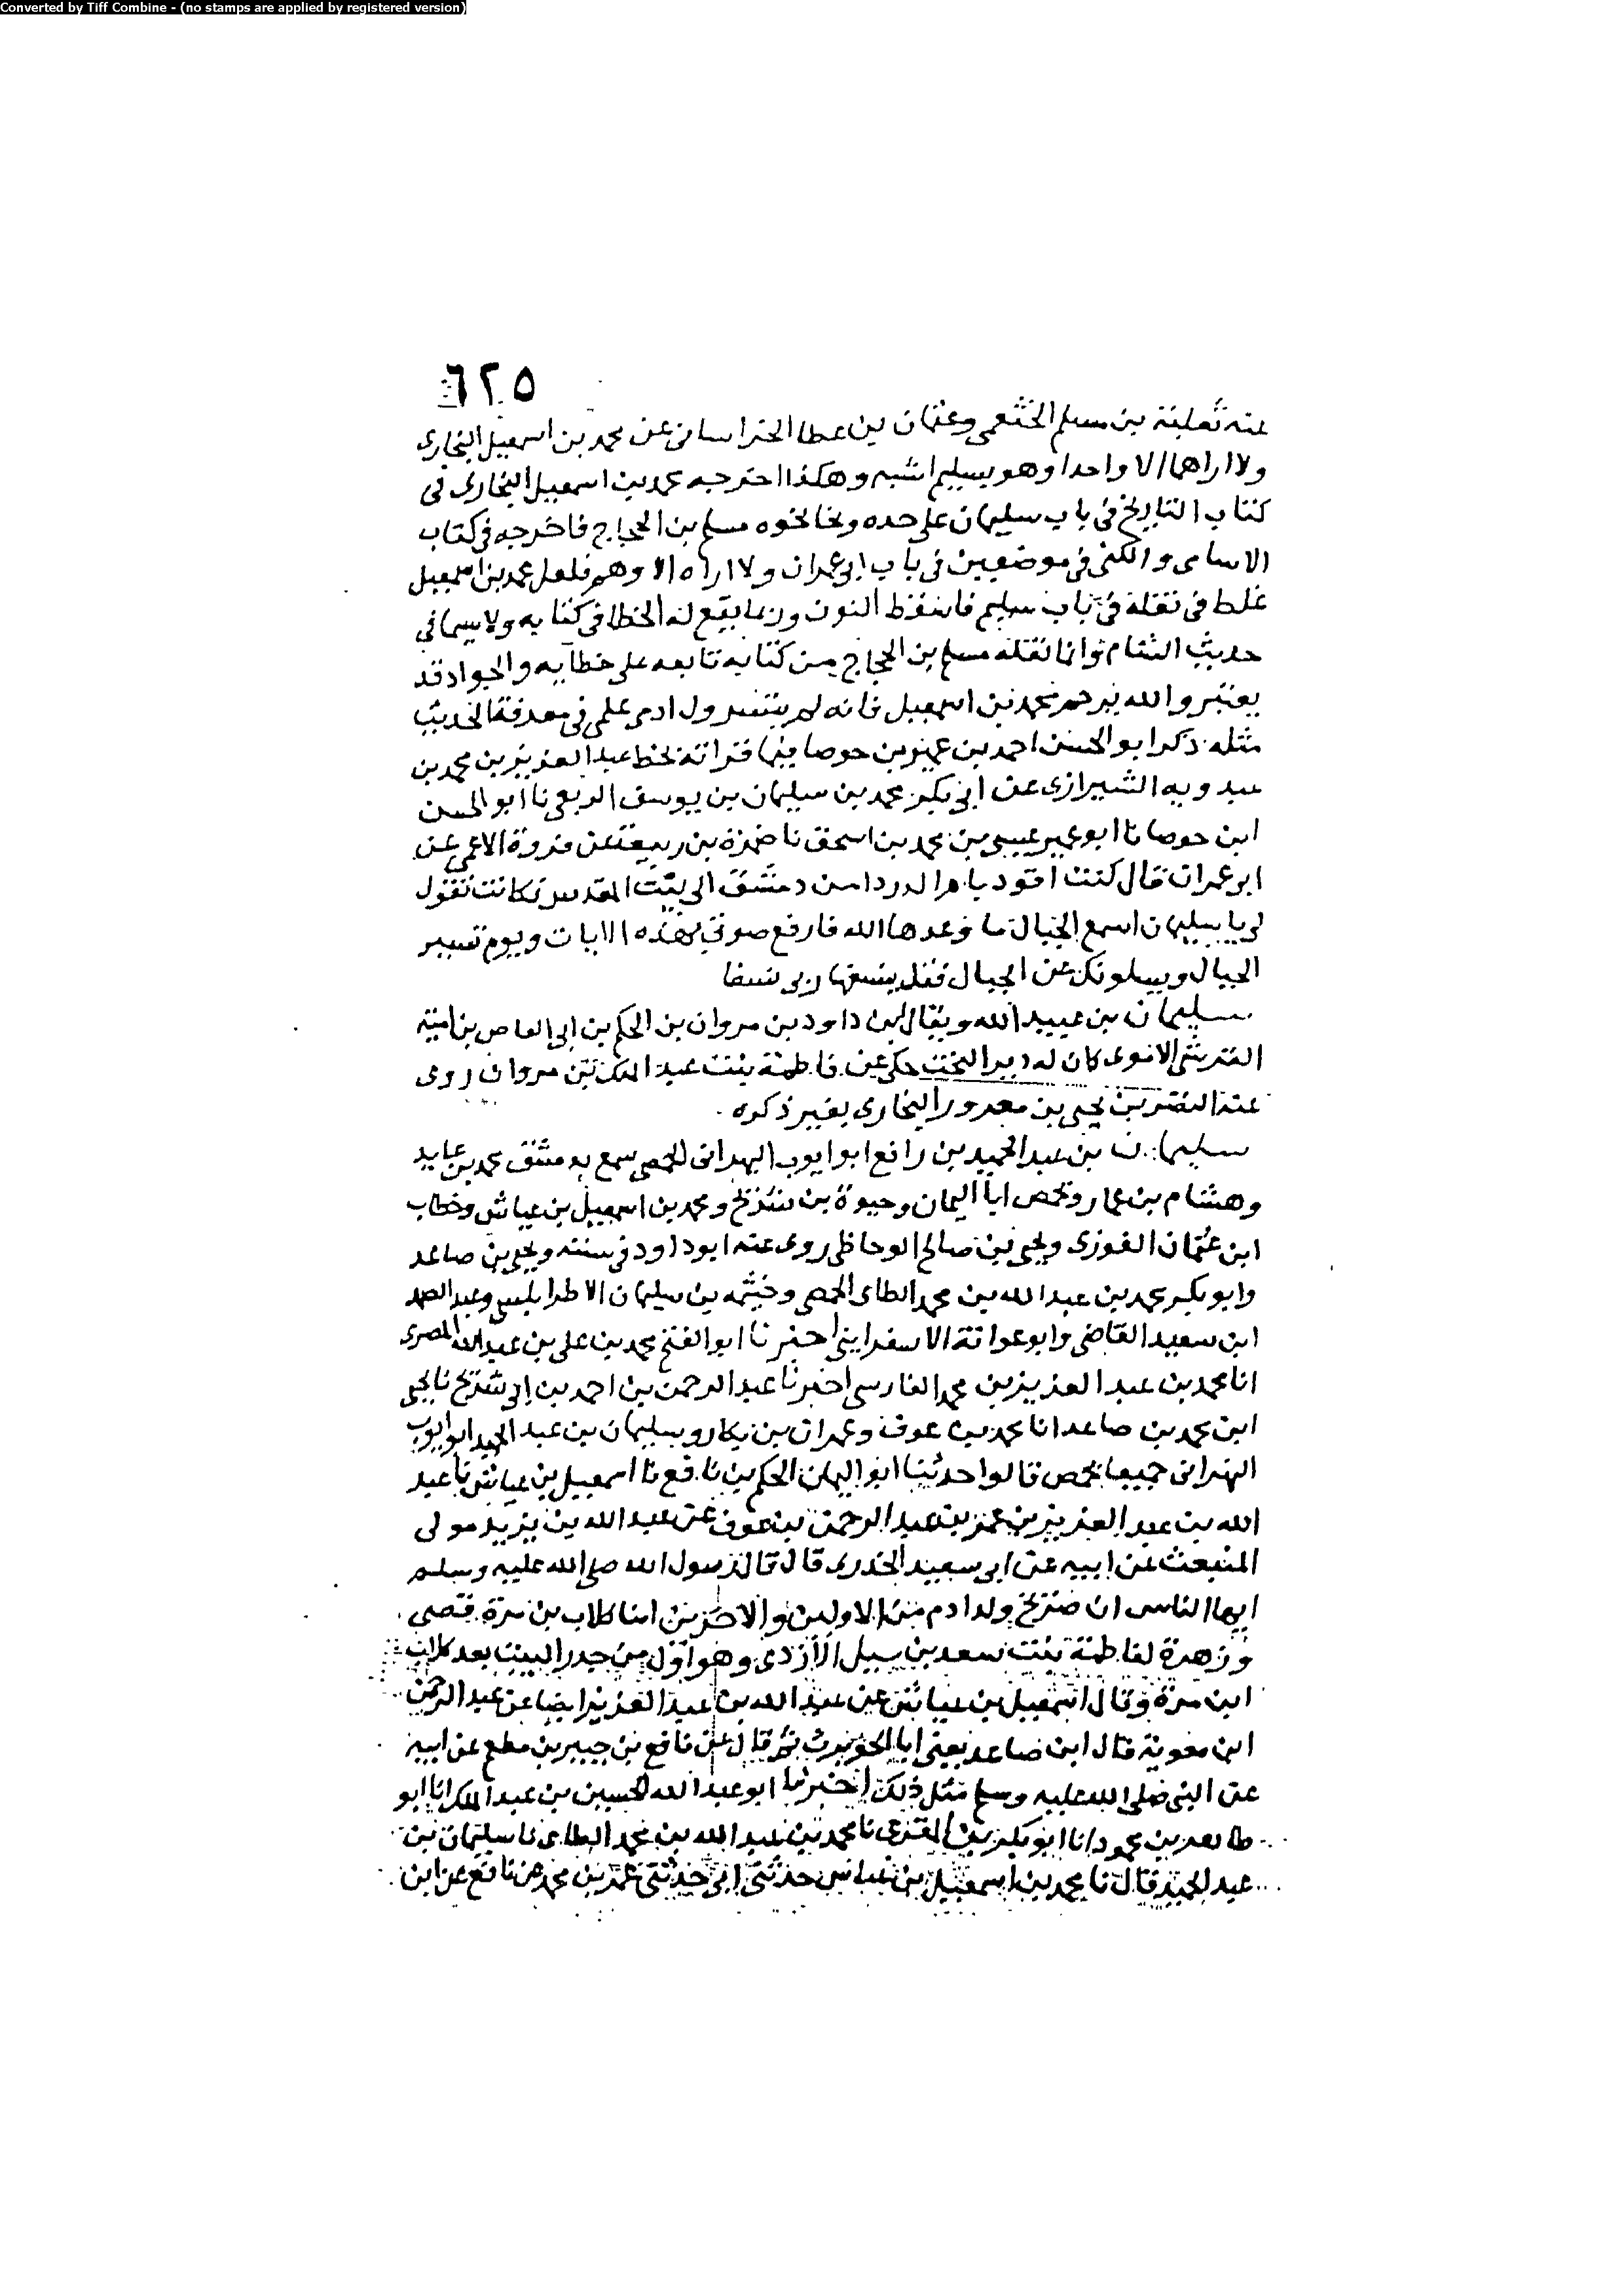 Converted by Tiff Combine - (no stamps are applied by registered version)
٦٢٥
عنه ثعلبة بن مسلم الخثعمي وعثمان بن عطا الخراساني عن محمد بن اسمعيل البخاري
ولا اراهما الا واحدا وهو بسليم اشبه وهكذا اخرجه محمد بن اسمعيل البخاري في
كتاب التاريخ في باب سليمان على حده ونحا نحوه مسلم بن الحجاج فاخرجه في كتاب
الاسامي والكنى في موضعين في باب ابي عمران ولا اراه الا وهم فلعل محمد بن اسمعيل
غلط في نقله في باب سليم فاسقط النون وربما يقع له الخطا في كتابه ولا سيما في
حديث الشام وانما نقله مسلم بن الحجاج من كتابه تابعه على خطايه والجواد قد
يعثر والله يرحم محمد بن اسمعيل فانه لم يتفسر ول ادمى علمى في معرفة الحديث
مثله ذكر ابو الحسن احمد بن عمير بن جوصا فيما قراته بخط عبد العزيز بن محمد بن
عبدويه الشيرازي عن ابي بكر محمد بن سليمان بن يوسف الربعي نا ابو الحسن
ابن جوصا نا ابو عمير عيسى بن محمد بن اسحق نا ضمرة بن ربيعة عن فروة الاعمى عن
ابي عمران قال كنت اقود بام الدردا من دمشق الى بيت المقدس فكانت تقول
لي يا سليمان اسمع الجبال ما وعدها الله فارفع صوتي بهذه الايات ويوم تسير
الجبال ويسلونك عن الجبال فقل ينسفها ربي نسفا
سليمان بن عبيد الله ويقال ابن داود بن مروان بن الحكم بن ابي العاص بن امية
القرشي الاموي كان له دير البخت حكى عن فاطمة بنت عبد الملك بن مروان روى
عنه النضر بن يحيى بن معرور البخاري بغير ذكره
سليمان بن عبد الحميد بن رافع ابو ايوب البهراني الحمصي سمع بدمشق محمد بن عايد
وهشام بن عمار وبحمص ابا اليمان وحيوة بن شريح ومحمد بن اسمعيل بن عياش وخطاب
ابن عثمان الفوزي ويحيى بن صالح الوحاظي روى عنه ابو داود في سننه ويحيى بن صاعد
وابو بكر محمد بن عبد الله بن محمد الطاي الحمصي وخيثمه بن سليمان الاطرابلسي وعبد الصمد
ابن سعيد القاضي وابو عوانة الاسفرايني اخبرنا ابو الفتح محمد بن علي بن عبد الله المصري
انا محمد بن عبد العزيز بن محمد الفارسي اخبرنا عبد الرحمن بن احمد بن ابي شريح نا يحيى
ابن محمد بن صاعد انا محمد بن عوف وعمران بن بكار وسليمان بن عبد الحميد ابو ايوب
البهراني جميعا بحمص قالوا حدثنا ابو اليمان الحكم بن نافع نا اسمعيل بن عياش نا عبد
الله بن عبد العزيز بن عمر بن عبد الرحمن بن عوف عن عبد الله بن يزيد مولى
المنبعث عن ابيه عن ابي سعيد الخدري قال قال رسول الله صلى الله عليه وسلم
ايها الناس ان صريح ولد ادم من الاولين والاخرين ابنا كلاب بن مرة قصي
وزهرة لفاطمة بنت سعد بن سيل الازدي وهو اول من جدر البيت بعد كلاب
ابن مرة وقال اسمعيل بن عياش عن عبد الله بن عبد العزيز ايضا عن عبد الرحمن
ابن معوية قال ابن صاعد يعني ابا الحويرث ثم قال عن نافع بن جبير بن مطعم عن ابيه
عن النبي صلى الله عليه وسلم مثل ذلك اخبرنا ابو عبد الله الحسين بن عبد الملك انا ابو
طاهر بن محمود انا ابو بكر بن المقري نا محمد بن عبد الله بن محمد الطاي نا سليمان بن
عبد الحميد قال نا محمد بن اسمعيل بن عياش حدثني ابي حدثني عمر بن محمد عن نافع عن ابن